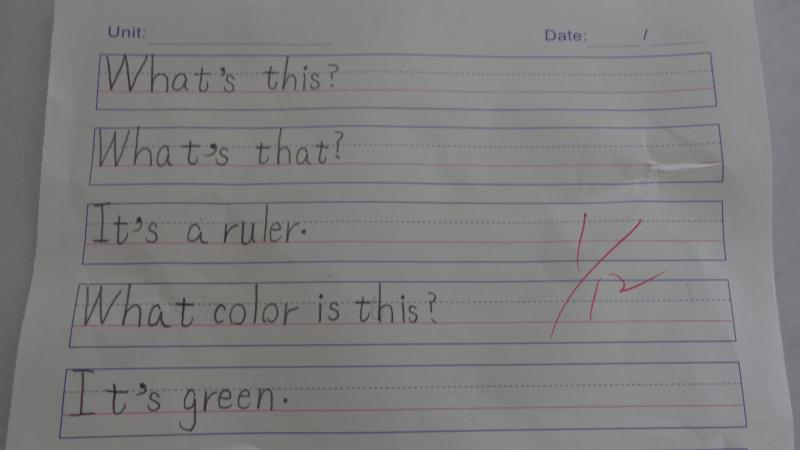 Unit: Date: /
What's this?
What's that?
It's a ruler.
What color is this?
1/12
It's green.